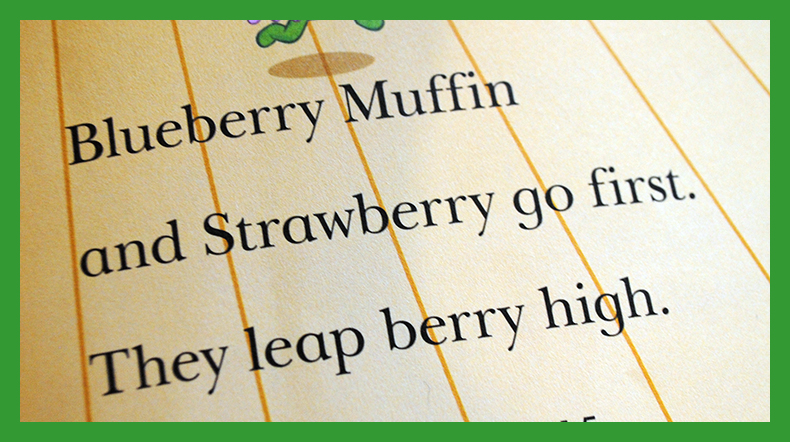 Blueberry Muffin
and Strawberry go first.
They leap berry high.